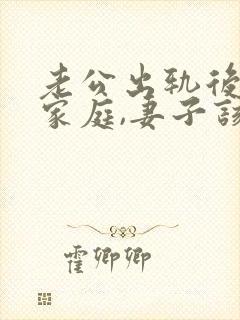 老公出轨後
家庭,妻子該
霍卿卿